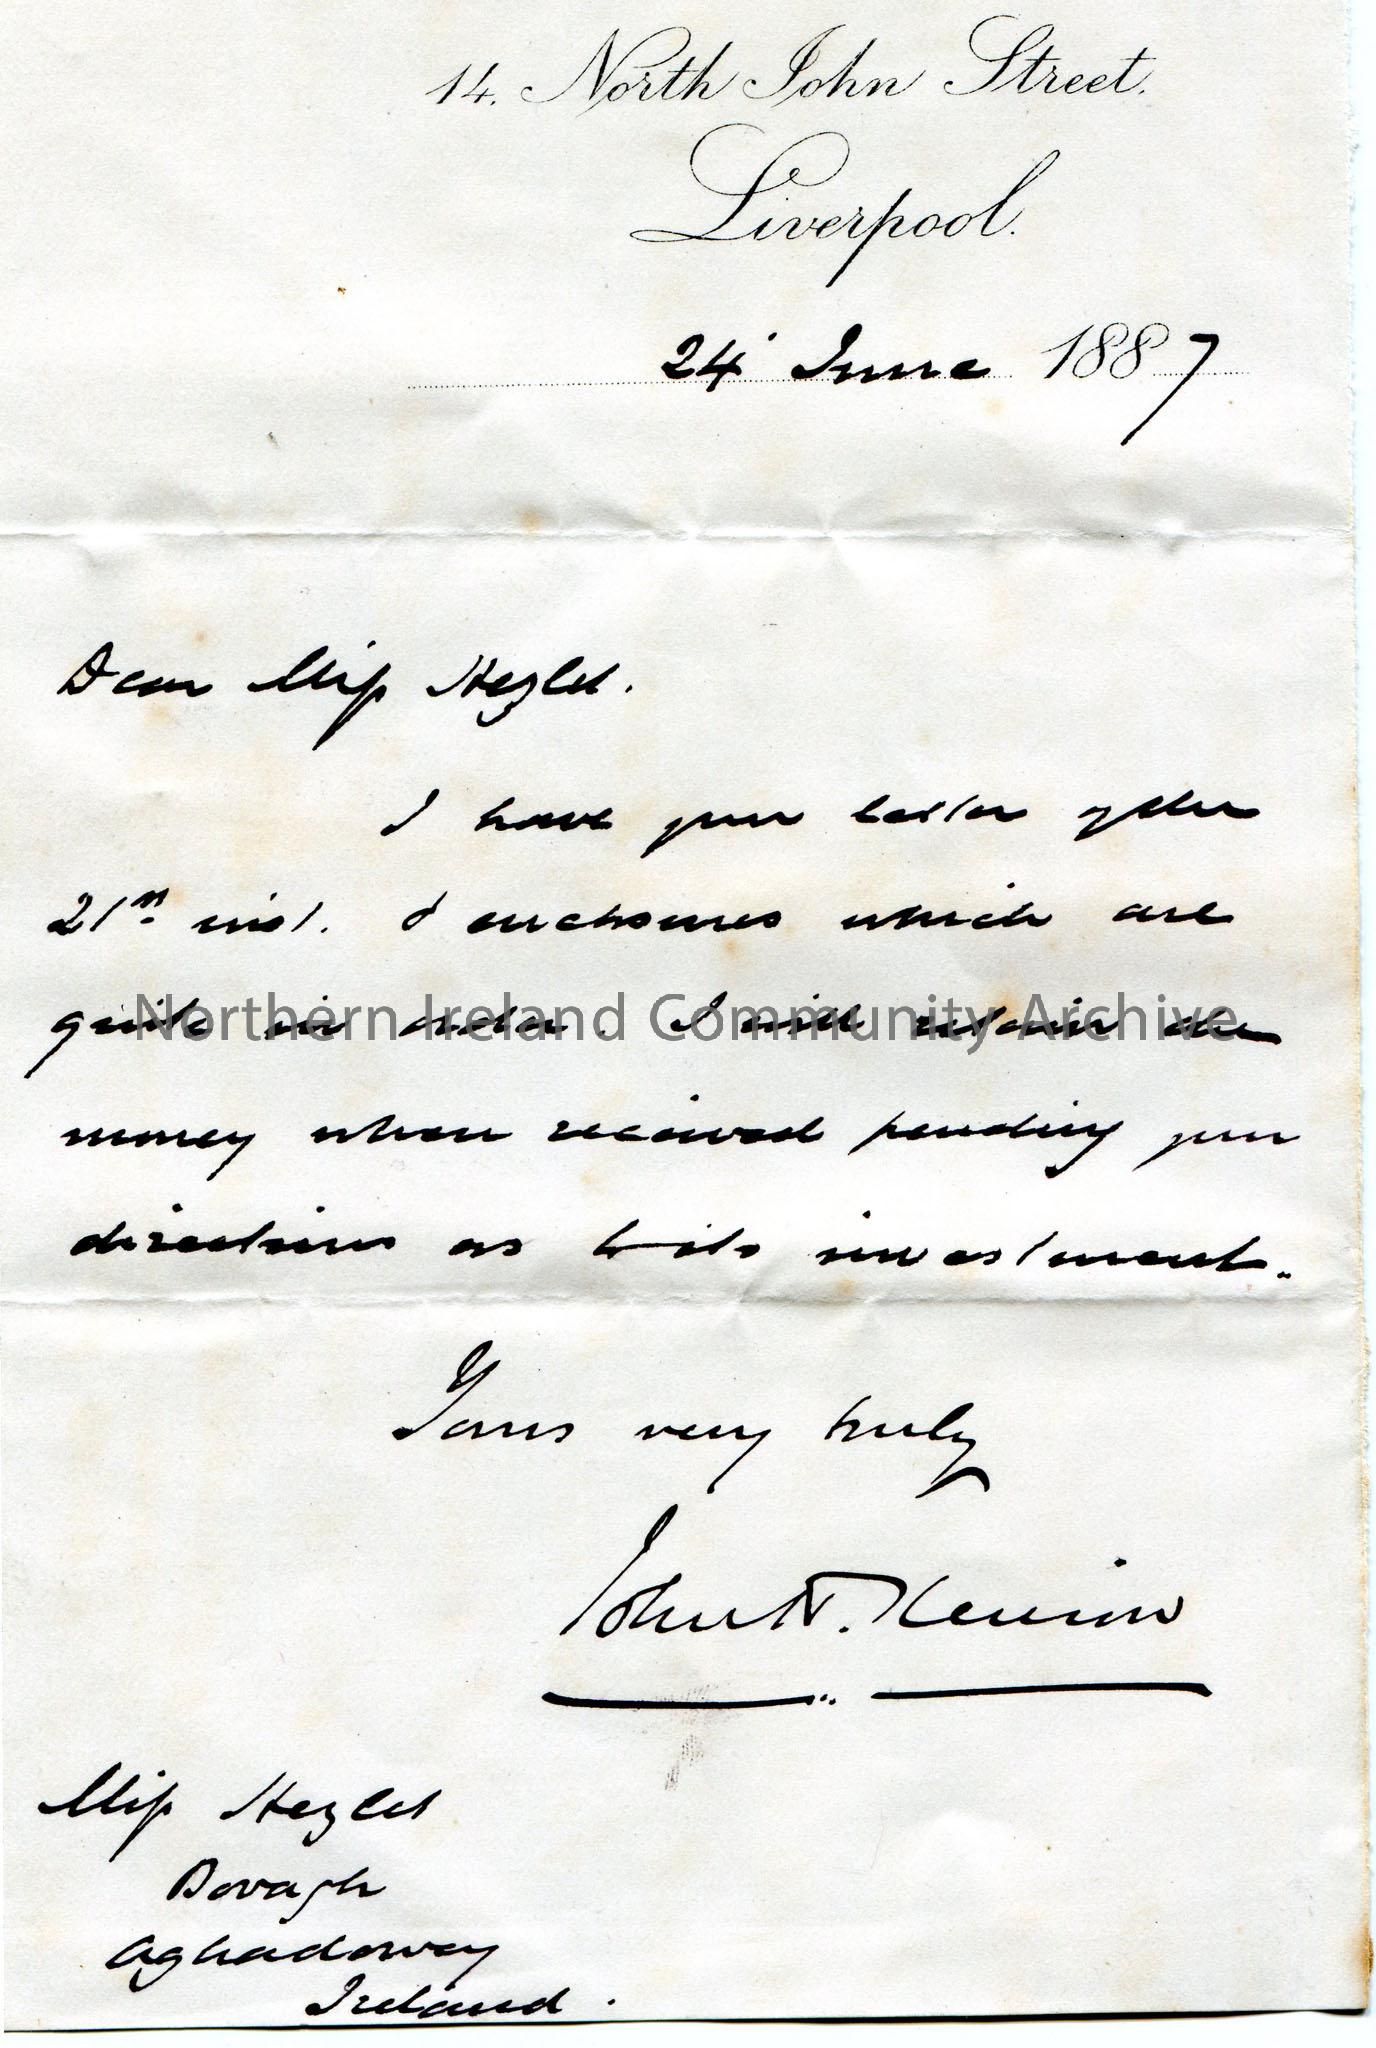 14. North John Street.
Liverpool.
24 June 1887
Dear Miss Hezlet.
I have your letter of the
21st inst. & enclosures which are
quite in order. I will retain the
Northern Ireland Community Archive
money when received pending your
directions as to its investment.
Yours very truly
John N.
Miss Hezlet
Bovagh
Aghadowey
Ireland.